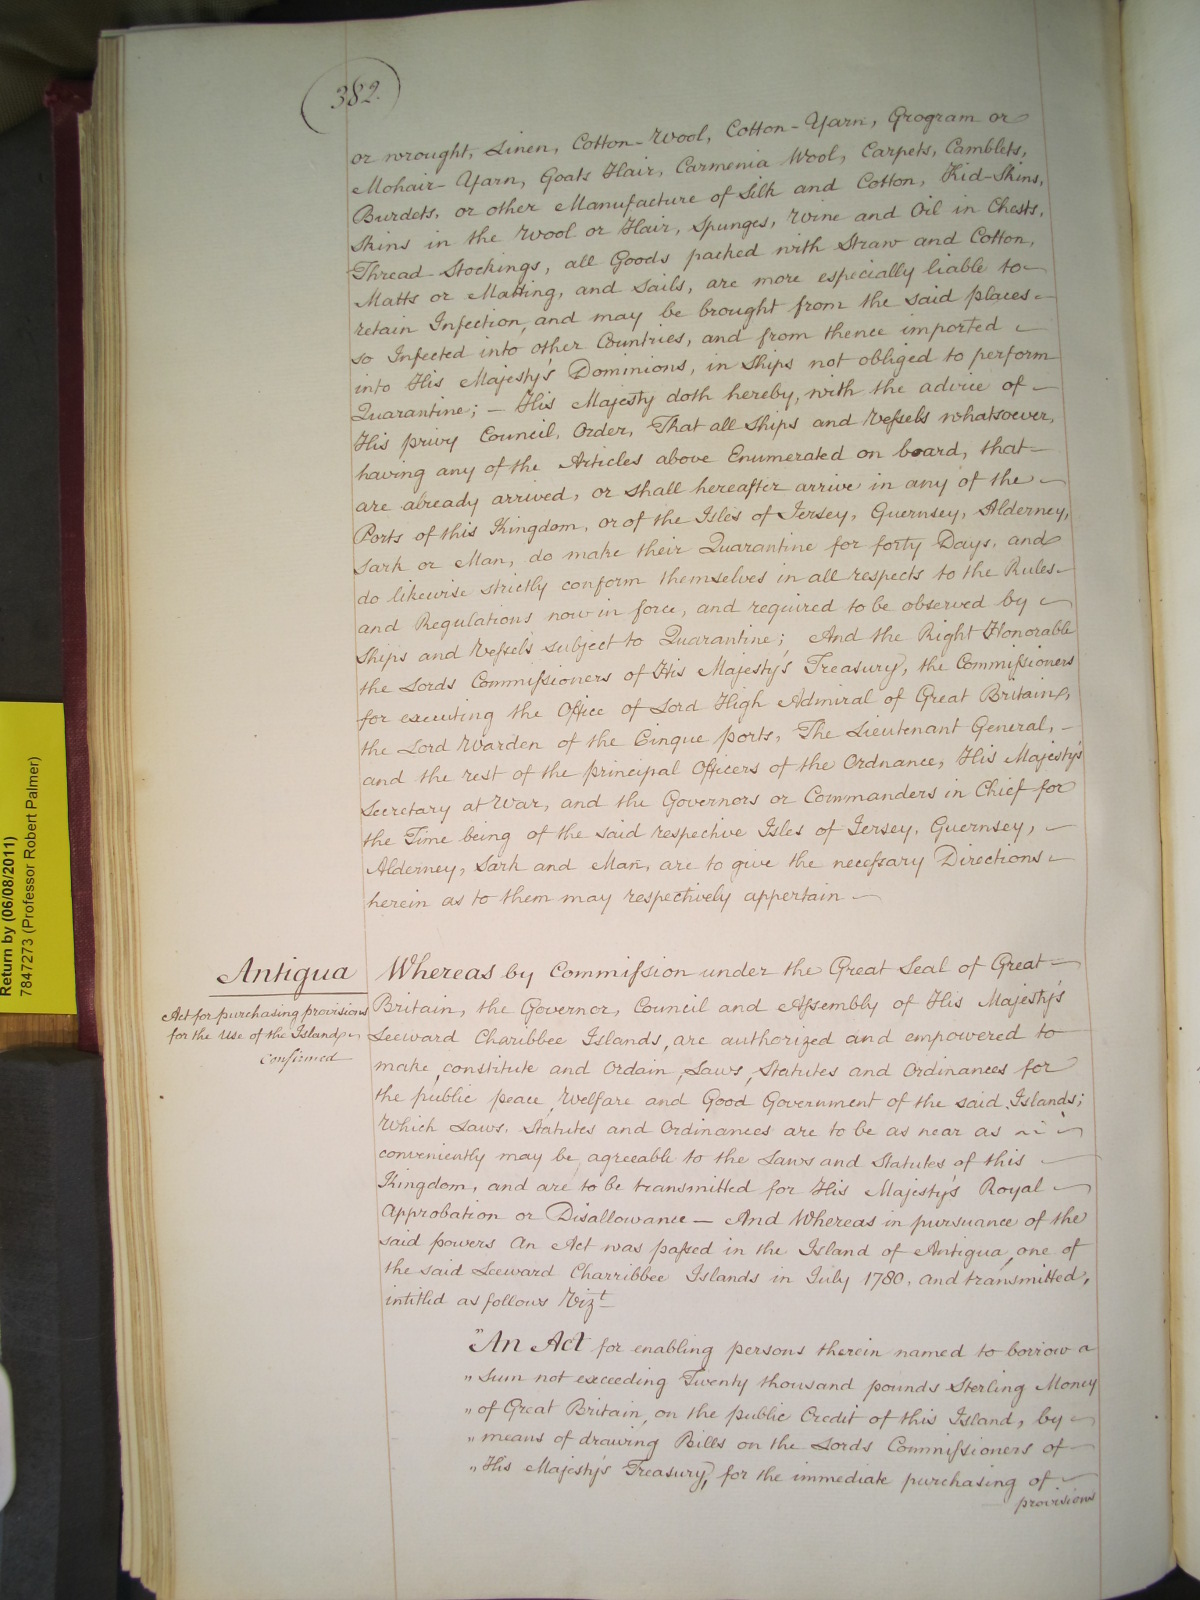 382.
or wrought, Linen, Cotton-Wool, Cotton-Yarn, Grogram or
Mohair-Yarn, Goats Hair, Carmenia Wool, Carpets, Camblets,
Burdets, or other Manufacture of Silk and Cotton, Kid-Skins,
Skins in the Wool or Hair, Spunges, Wine and Oil in Chests,
Thread-Stockings, all Goods packed with Straw and Cotton,
Matts or Matting, and Sails, are more especially liable to
retain Infection, and may be brought from the said places
so Infected into other Countries, and from thence imported
into His Majesty's Dominions, in Ships not obliged to perform
Quarantine; — His Majesty doth hereby, with the advice of
His privy Council, Order, That all Ships and Vessels whatsoever,
having any of the Articles above Enumerated on board, that
are already arrived, or shall hereafter arrive in any of the
Ports of this Kingdom, or of the Isles of Jersey, Guernsey, Alderney,
Sark or Man, do make their Quarantine for forty Days, and
do likewise strictly conform themselves in all respects to the Rules
and Regulations now in force, and required to be observed by
Ships and Vessels subject to Quarantine; And the Right Honorable
the Lords Commissioners of His Majesty's Treasury, the Commissioners
for executing the Office of Lord High Admiral of Great Britain,
the Lord Warden of the Cinque ports, The Lieutenant General, —
and the rest of the principal Officers of the Ordnance, His Majesty's
Secretary at War, and the Governors or Commanders in Chief for
the Time being of the said respective Isles of Jersey, Guernsey,
Alderney, Sark and Man, are to give the necessary Directions
herein as to them may respectively appertain —
Antigua
Act for purchasing provisions
for the Use of the Island
Confirmed
Whereas by Commission under the Great Seal of Great
Britain, the Governor, Council and Assembly of His Majesty's
Leeward Charibbee Islands, are authorized and empowered to
make, constitute and Ordain, Laws, Statutes and Ordinances for
the public peace, Welfare and Good Government of the said Islands;
Which Laws, Statutes and Ordinances are to be as near as
conveniently may be, agreeable to the Laws and Statutes of this
Kingdom, and are to be transmitted for His Majesty's Royal
Approbation or Disallowance — And Whereas in pursuance of the
said powers An Act was passed in the Island of Antigua, one of
the said Leeward Charribbee Islands in July 1780, and transmitted,
intitled as follows Vizt
"An Act for enabling persons therein named to borrow a
" Sum not exceeding Twenty thousand pounds Sterling Money
" of Great Britain, on the public Credit of this Island, by
" means of drawing Bills on the Lords Commissioners of
" His Majesty's Treasury, for the immediate purchasing of
provisions
Return by (06/08/2011)
7847273 (Professor Robert Palmer)